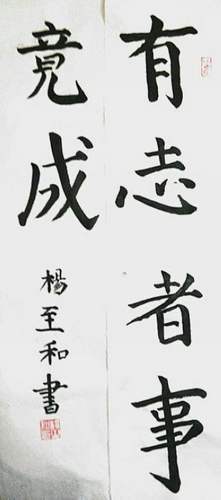 有志者事
竟成
楊至和書